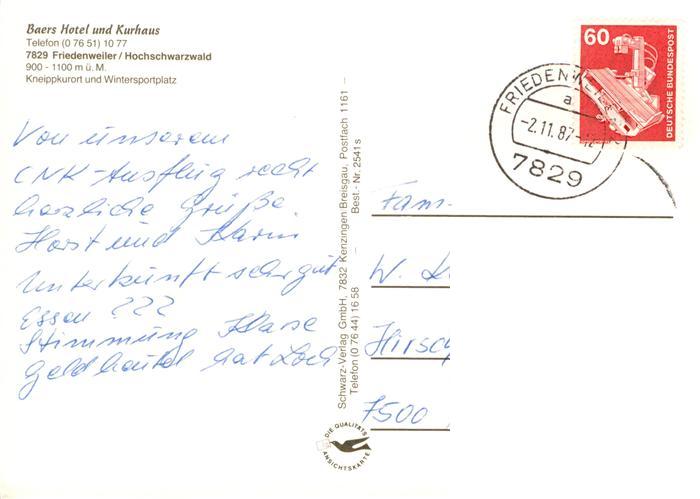 Baers Hotel und Kurhaus
Telefon (0 76 51) 10 77
7829 Friedenweiler / Hochschwarzwald
900 - 1100 m ü. M.
Kneippkurort und Wintersportplatz
Von unserem
CNK-Ausflug recht
herzliche Grüße.
Horst und Karin
Unterkunft sehr gut
Essen ???
Stimmung Klase
Geldbeutel hat Loch
Schwarz-Verlag GmbH, 7832 Kenzingen Breisgau, Postfach 1161 –
Telefon (0 76 44) 16 58 – Best.-Nr. 2541 s
DIE QUALITÄTS
ANSICHTSKARTE
60
DEUTSCHE BUNDESPOST
a
-2.11.87
7829
Fam.
W.
7500